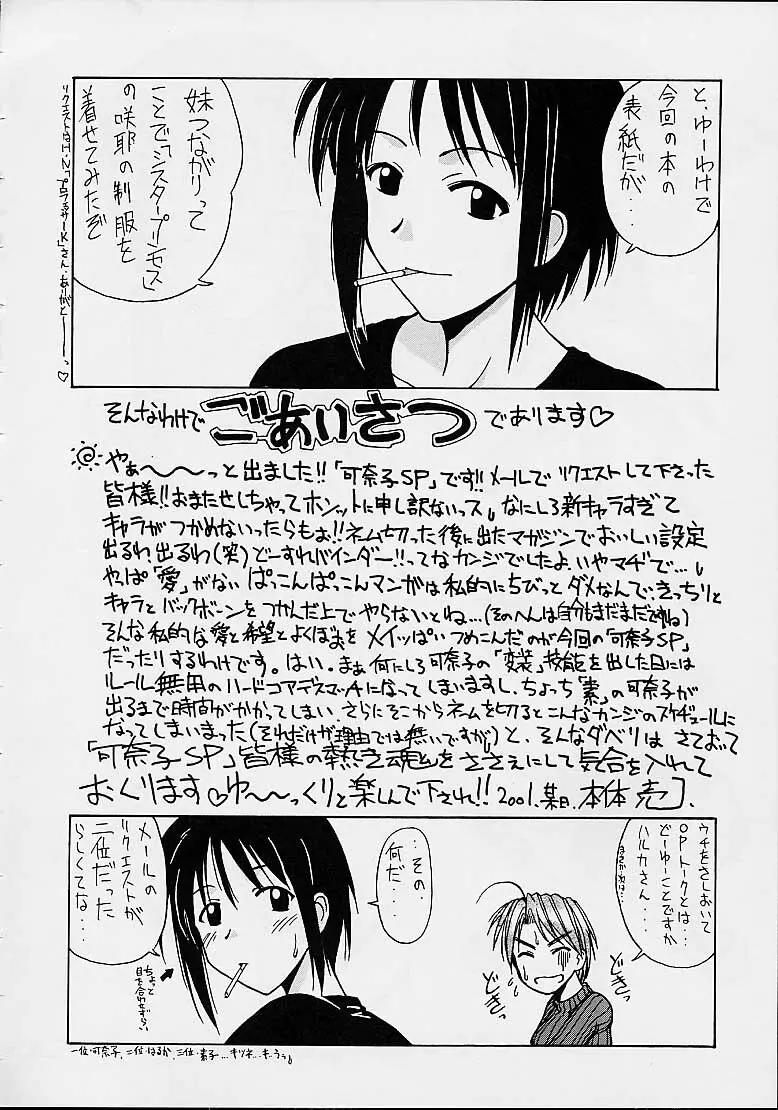 と、ゆーわけで
今回の本の
表紙だが・・・
妹つながりって
ことで「シスタープリンセス」
の咲耶の制服を
着せてみたぞ
そんなわけで ごあいさつ であります♡
やぁ〜〜〜っと出ました!!「可奈子SP」です!!メールでリクエストして下さった
皆様!!おまたせしちゃってホンットに申し訳ないっス なにしろ新キャラすぎて
キャラがつかめないったらもぉ!!ネム切った後に出たマガジンでおいしい設定
出るわ、出るわ(笑)どーすれバインダー!!ってなカンジでしたよ、いやマヂで…
やっぱ「愛」がない ぱっこんぱっこんマンガは私的にちびっとダメなんで、きっちりと
キャラとバックボーンをつかんだ上でやらないとね…(そのへんは自分もまだまだですね)
そんな私的な愛と希望とよくぼおをメイッぱいつめこんだのが今回の「可奈子SP」
だったりするわけです。はい。まぁ何にしろ可奈子の「変装」技能を出した日には
ルール無用のハードコアデスマッチになってしまいますし、ちょっち「素」の可奈子が
出るまで時間がかかってしまい さらにそこからネームを切るとこんなカンジのスケヂュールに
なってしまいまった(それだけが理由では無いですが)と、そんなダベリはさておいて
「可奈子SP」皆様の熱き魂をささえにして気合を入れて
おくります♡ゆ〜〜っくりと楽しんで下され!!2001.某日.本体 売〕.
ウチをさしおいて
OPトークとは…
どーゆーことですか
ハルカさん…
どきっ
どきっ
・・その
何だ・・
メールの
リクエストが
二位だった
らしくてな・・
ちょっと
目を合わせずらい
一位・可奈子、二位・はるか、三位・素子…キツネ…キ…うぅ